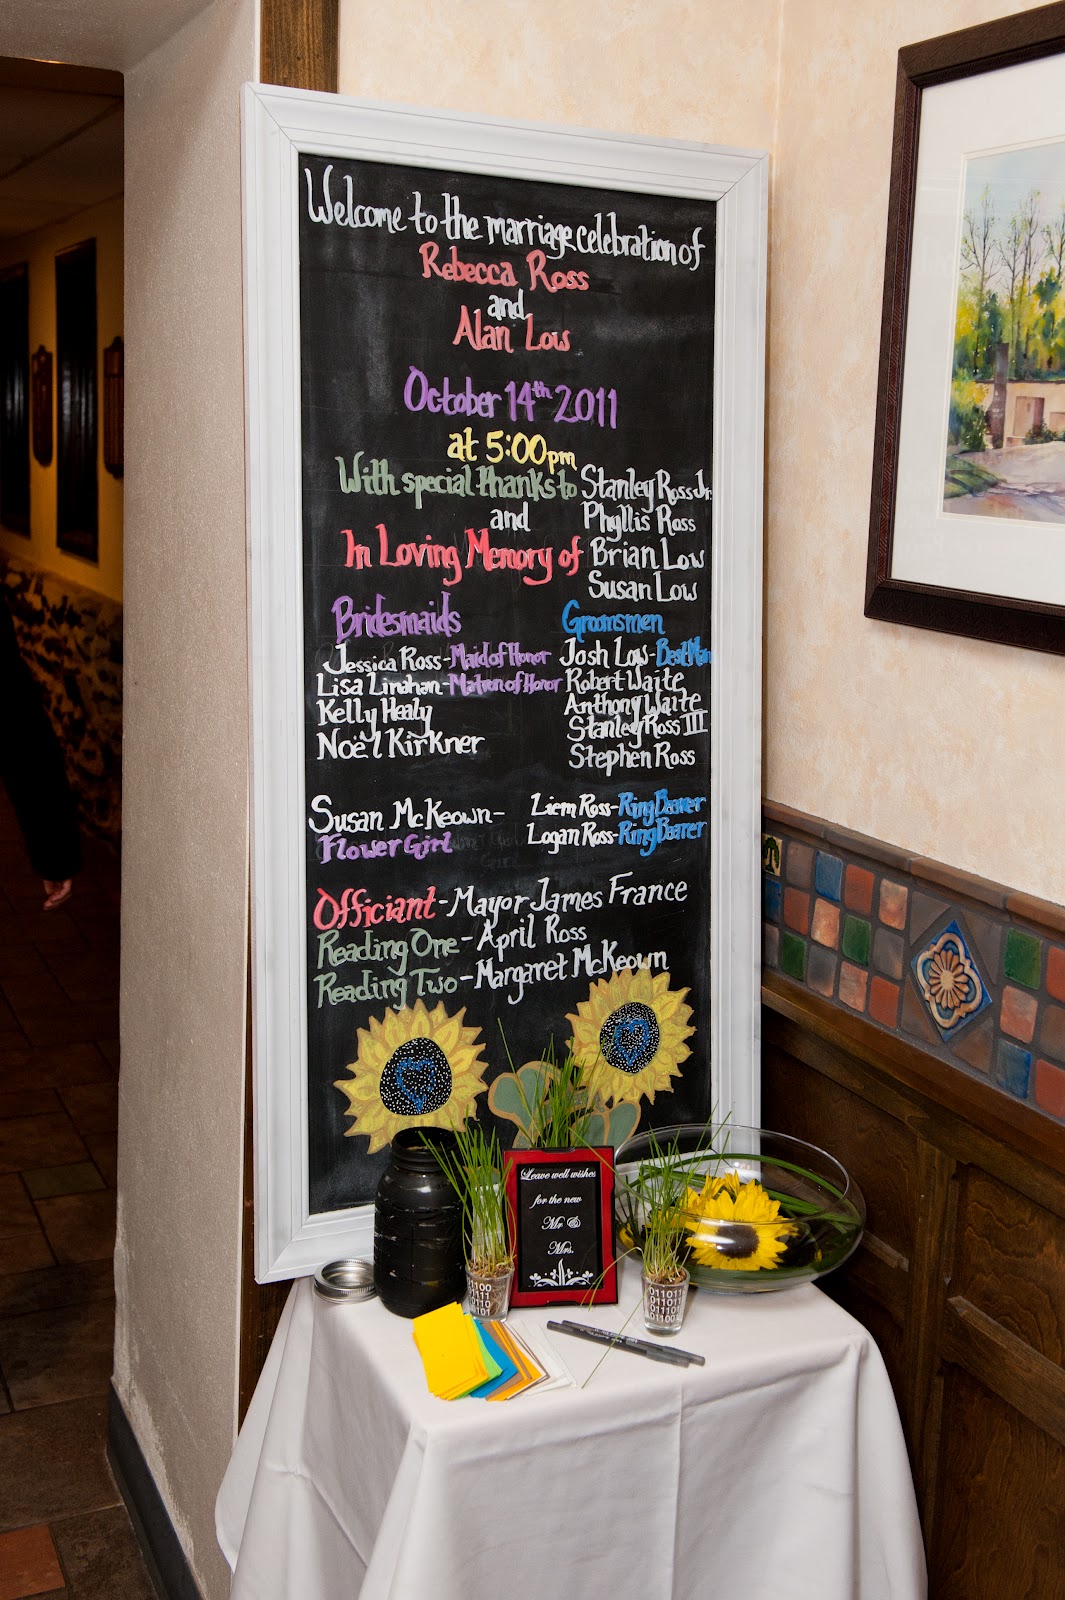 Welcome to the marriage celebration of
Rebecca Ross
and
Alan Low
October 14th 2011
at 5:00pm
With special thanks to Stanley Ross Jr.
and Phyllis Ross
In Loving Memory of Brian Low
Susan Low
Bridesmaids
Jessica Ross - Maid of Honor
Lisa Linahan - Matron of Honor
Kelly Healy
Noël Kirkner
Groomsmen
Josh Low - Best Man
Robert Waite
Anthony Waite
Stanley Ross III
Stephen Ross
Susan McKeown -
Flower Girl
Liem Ross - Ring Bearer
Logan Ross - Ring Bearer
Officiant - Mayor James France
Reading One - April Ross
Reading Two - Margaret McKeown
Leave well wishes
for the new
Mr &
Mrs.
01101
01101
01110
01100